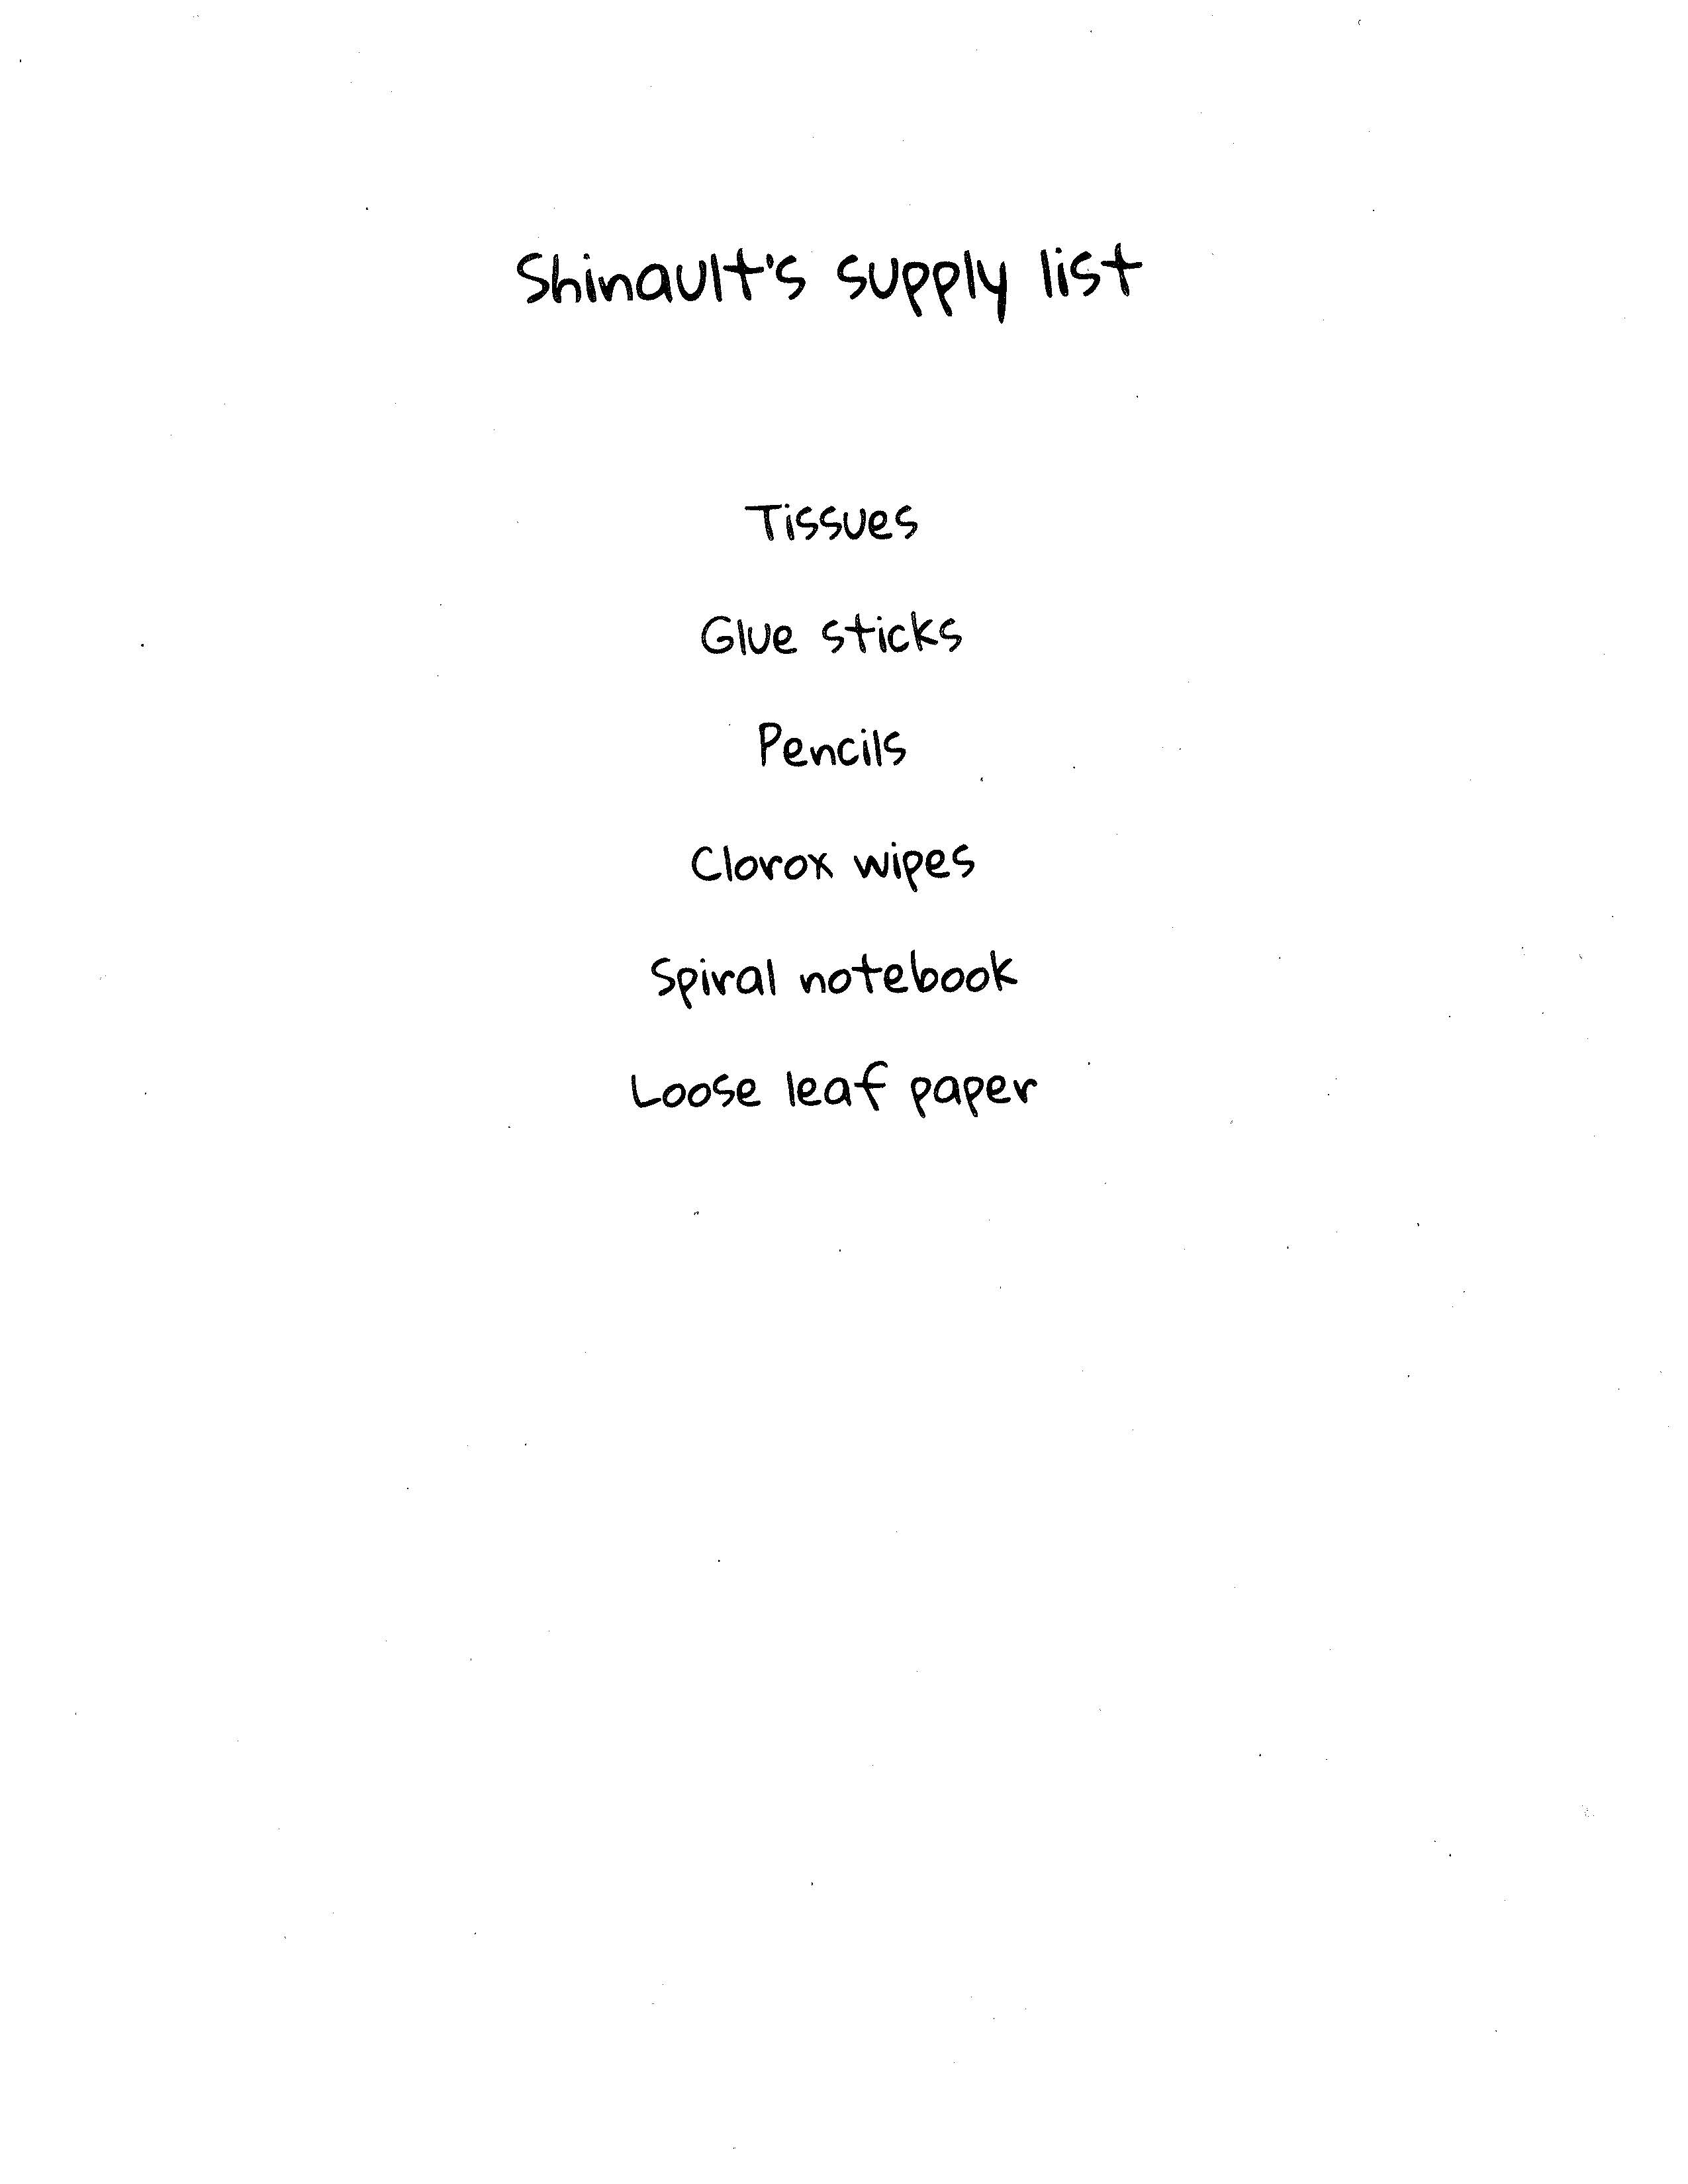 Shinault's supply list
Tissues
Glue sticks
Pencils
Clorox wipes
Spiral notebook
Loose leaf paper